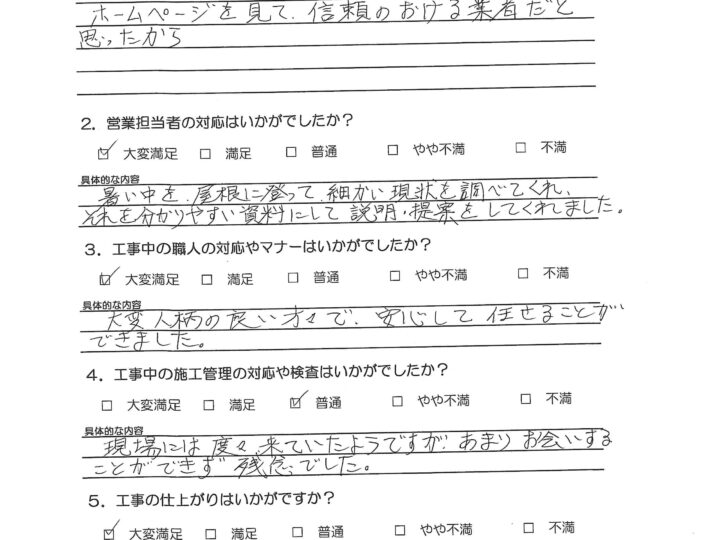 ホームページを見て、信頼のおける業者だと
思ったから
2. 営業担当者の対応はいかがでしたか？
☑ 大変満足 □ 満足 □ 普通 □ やや不満 □ 不満
具体的な内容
暑い中を、屋根に登って、細かい現状を調べてくれ、
それを分かりやすい資料にして説明・提案をしてくれました。
3. 工事中の職人の対応やマナーはいかがでしたか？
☑ 大変満足 □ 満足 □ 普通 □ やや不満 □ 不満
具体的な内容
大変人柄の良い方々で、安心して任せることが
できました。
4. 工事中の施工管理の対応や検査はいかがでしたか？
□ 大変満足 □ 満足 ☑ 普通 □ やや不満 □ 不満
具体的な内容
現場には度々来ていたようですが、あまりお会いする
ことができず残念でした。
5. 工事の仕上がりはいかがですか？
☑ 大変満足 □ 満足 □ 普通 □ やや不満 □ 不満